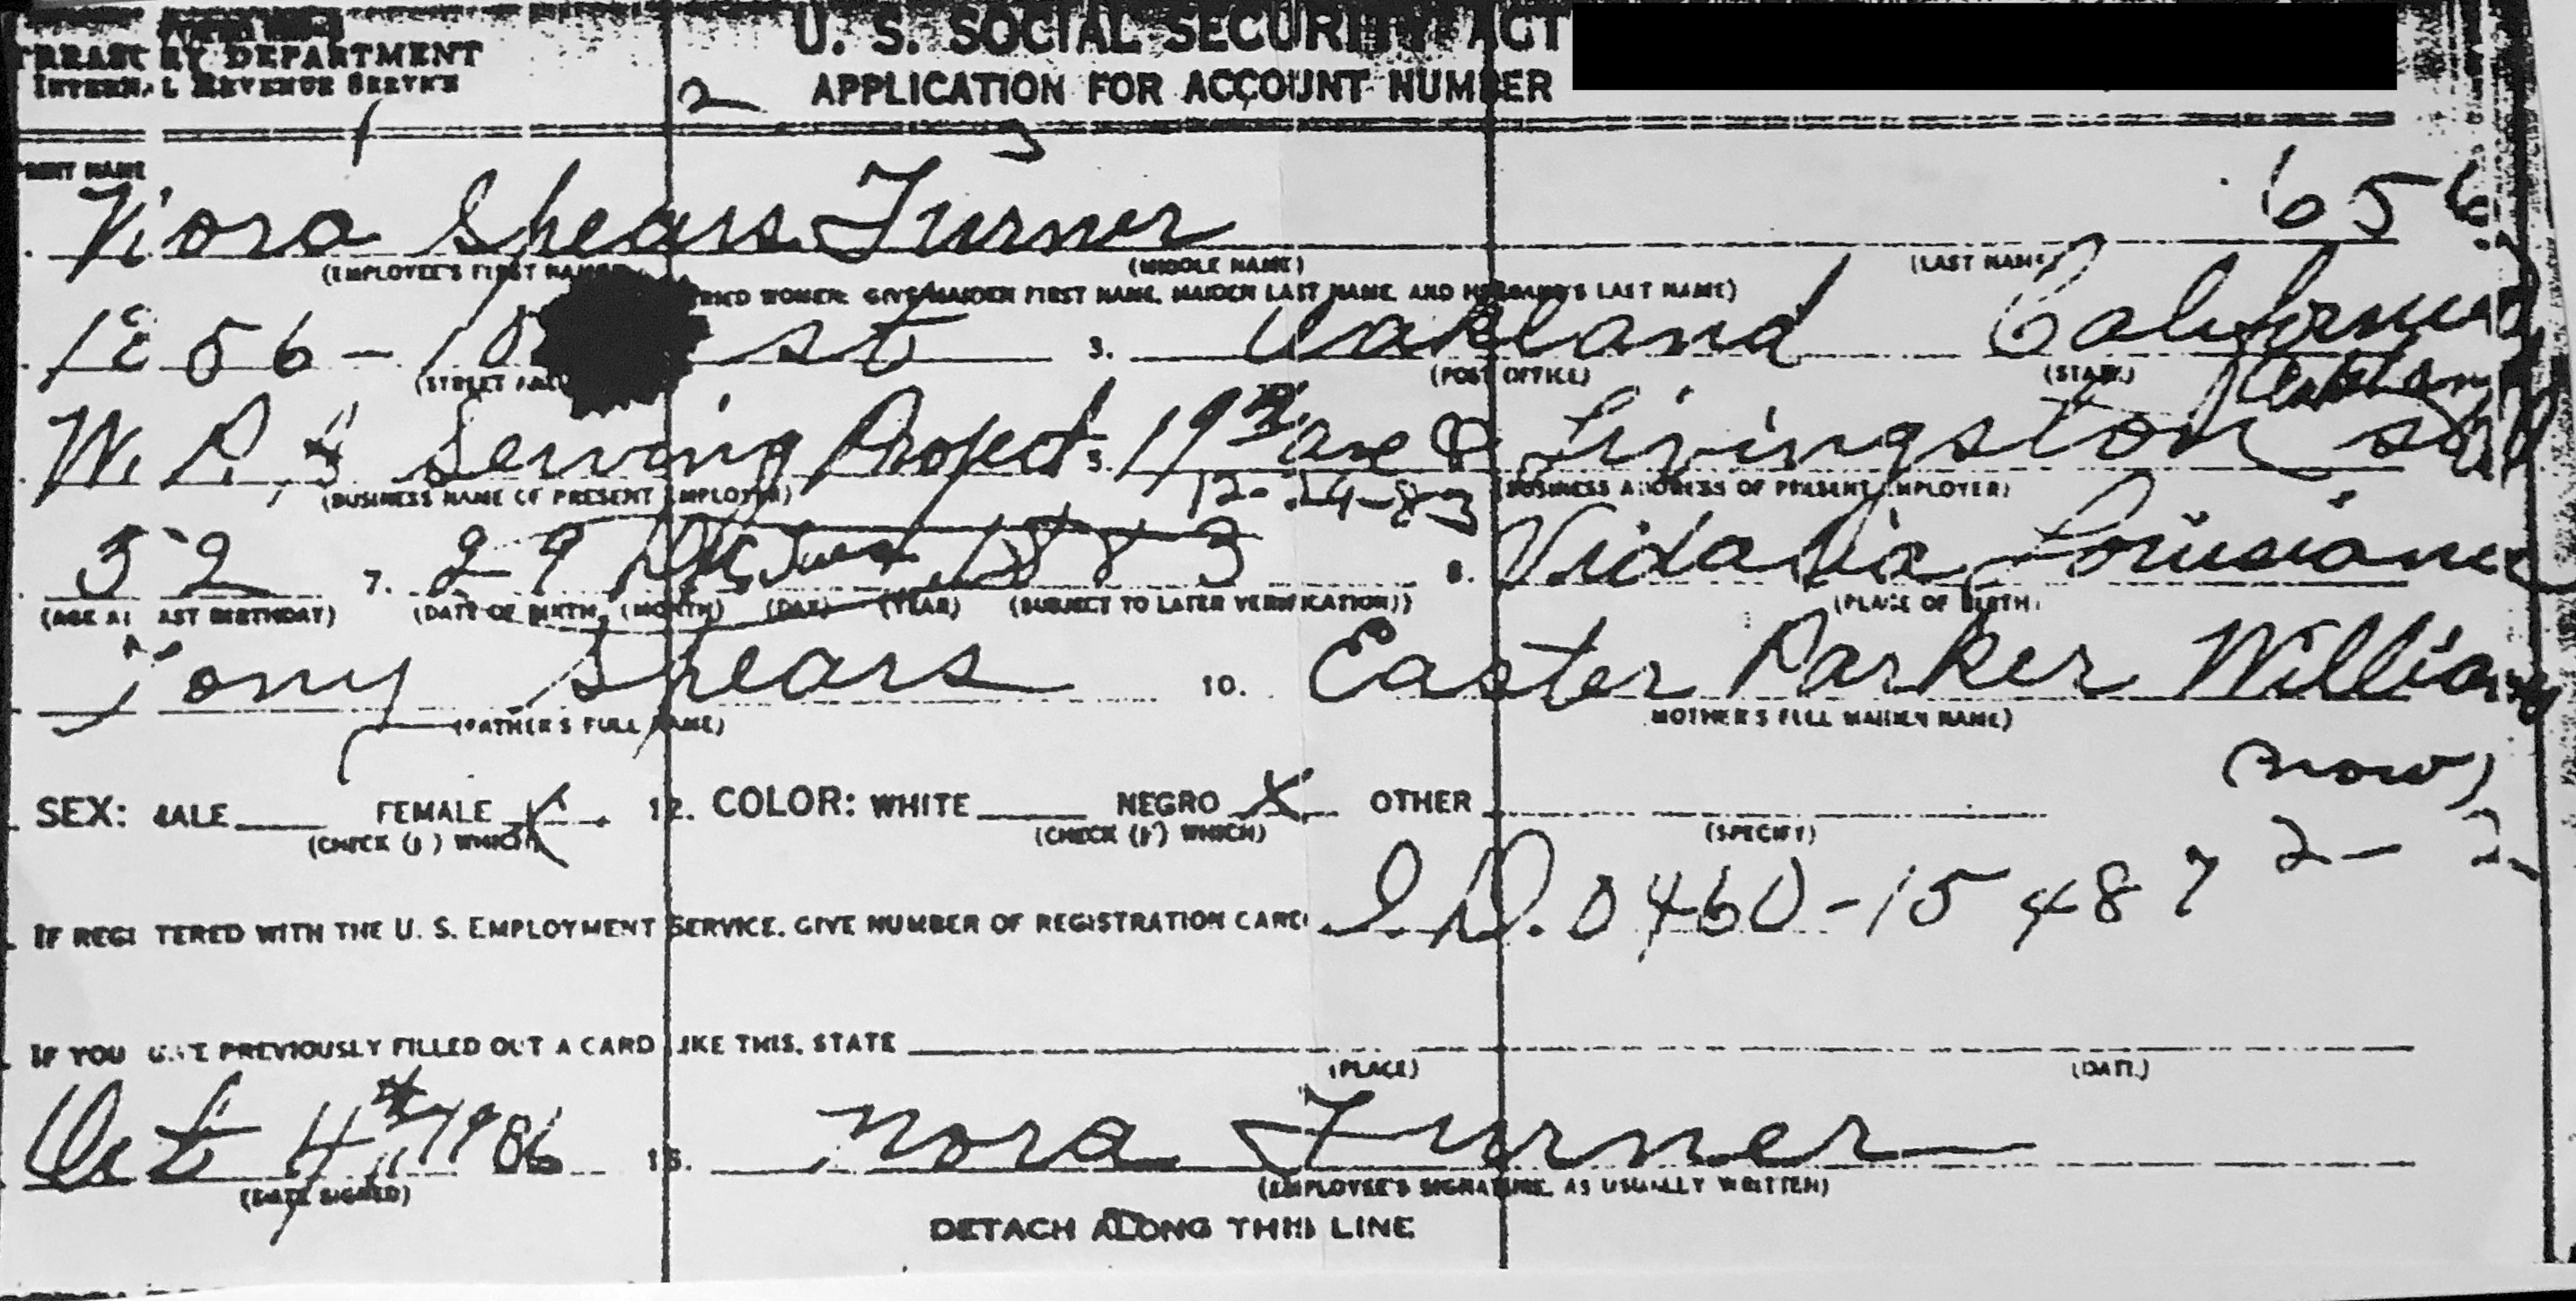 TREASURY DEPARTMENT
INTERNAL REVENUE SERVICE
U. S. SOCIAL SECURITY ACT
APPLICATION FOR ACCOUNT NUMBER
1 2 3
PRINT NAME
Nora Shears Turner 656
(EMPLOYEE'S FIRST NAME) (MIDDLE NAME) (LAST NAME)
MARRIED WOMEN: GIVE MAIDEN FIRST NAME, MAIDEN LAST NAME, AND HUSBAND'S LAST NAME)
56 - 10 st 3. Oakland California
(STREET AND (POST OFFICE) (STATE)
Oakland
W. P. A Serving Project 5. 19th ave & Livingston st
(BUSINESS NAME OF PRESENT EMPLOYER) 12-24-83 (BUSINESS ADDRESS OF PRESENT EMPLOYER)
52 7. 29 1883 8. Vidalia, Louisiana
(AGE AT LAST BIRTHDAY) (DATE OF BIRTH: (MONTH) (DAY) (YEAR) (SUBJECT TO LATER VERIFICATION)) (PLACE OF BIRTH)
Tony Shears 10. Easter Parker Williams
(FATHER'S FULL NAME) MOTHER'S FULL MAIDEN NAME)
(now)
SEX: MALE FEMALE X 12. COLOR: WHITE NEGRO X OTHER
(CHECK (✓) WHICH) (CHECK (✓) WHICH) (SPECIFY)
2- 2
IF REGISTERED WITH THE U. S. EMPLOYMENT SERVICE, GIVE NUMBER OF REGISTRATION CARD I. D. 0460-15487
IF YOU HAVE PREVIOUSLY FILLED OUT A CARD LIKE THIS, STATE
(PLACE) (DATE)
Oct 4th 1936 15. Nora Turner
(DATE SIGNED) (EMPLOYEE'S SIGNATURE, AS USUALLY WRITTEN)
DETACH ALONG THIS LINE